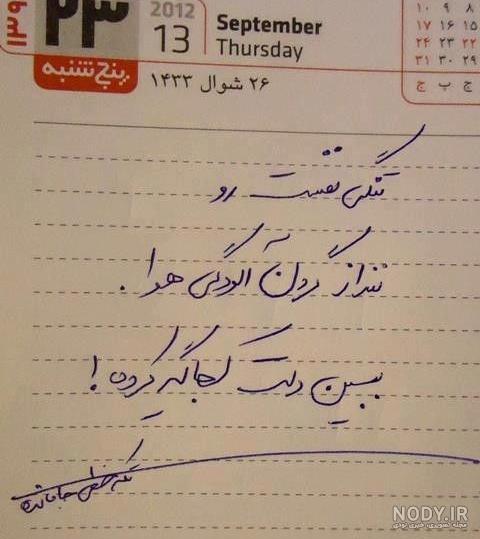 ۱۳۹
۲۳
پنج‌شنبه
2012
13
September
Thursday
۲۶ شوال ۱۴۳۳
۱۰ ۹ ۸
۱۷ ۱۶ ۱۵
۲۴ ۲۳ ۲۲
۳۱ ۳۰ ۲۹
ج پ چ
تنگی نفست رو
ننداز گردن آلودگی هوا .
ببین دلت کجا گیر کرده !
NODY.IR